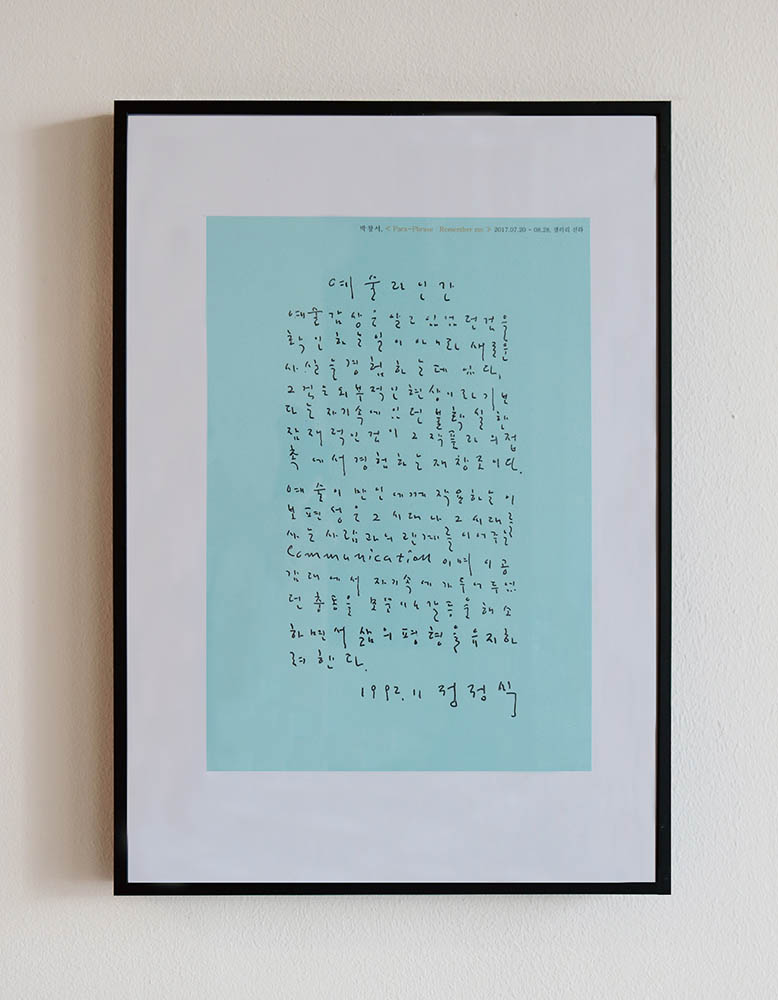 박창서, < Para-Phrase : Remember me > 2017.07.20 - 08.28, 갤러리 신라
예술과 인간
예술감상은 알고 있었던 것을
확인하는 일이 아니라 새로운
사실을 경험하는데 있다.
그것은 외부적인 현상이라기 보
다는 자기 속에 있던 불확실한
잠재적인 것이 그 작품과의 접
촉에서 경험하는 재창조이다.
예술이 만인에게 작용하는 이
보편성은 그 시대나 그 시대를
사는 사람과의 관계를 이어주는
Communication 이며 시공
에서 자기 속에 가두어 두었
던 충동을 갈등을 해소
하면서 삶의 평형을 유지하
려 한다.
1992. 11 정점식